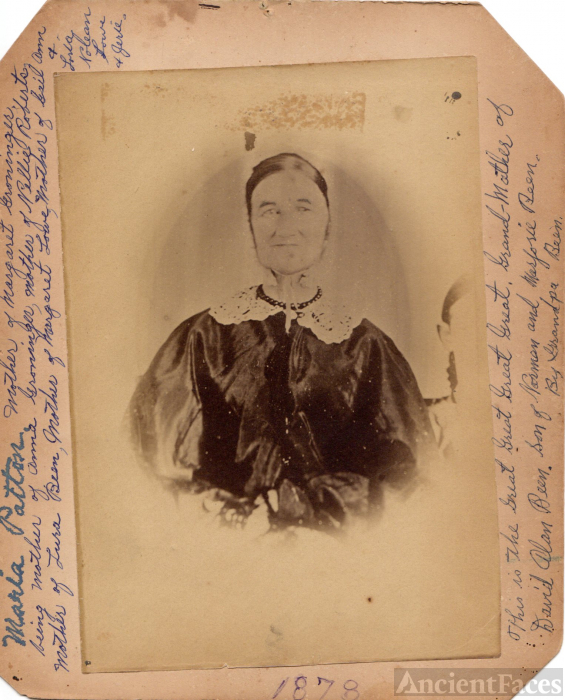 Maria Patton, Mother of Margaret Groninger,
being mother of Anna Groninger, mother of Nellie Roberts,
Mother of Lura Been, Mother of Margaret Lowe, Mother of Ann
&
Nolean
Lowe
& Jerie.
This is the Great Great Great Great. Grand-Mother of
David Alan Been. Son of Norman and Marjorie Been.
By Grandpa Been.
1878
AncientFaces